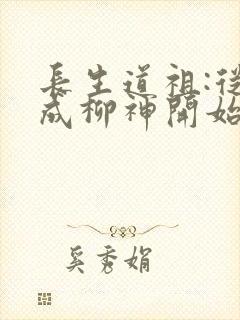 長生道祖:從
成柳神開始
奚秀娟